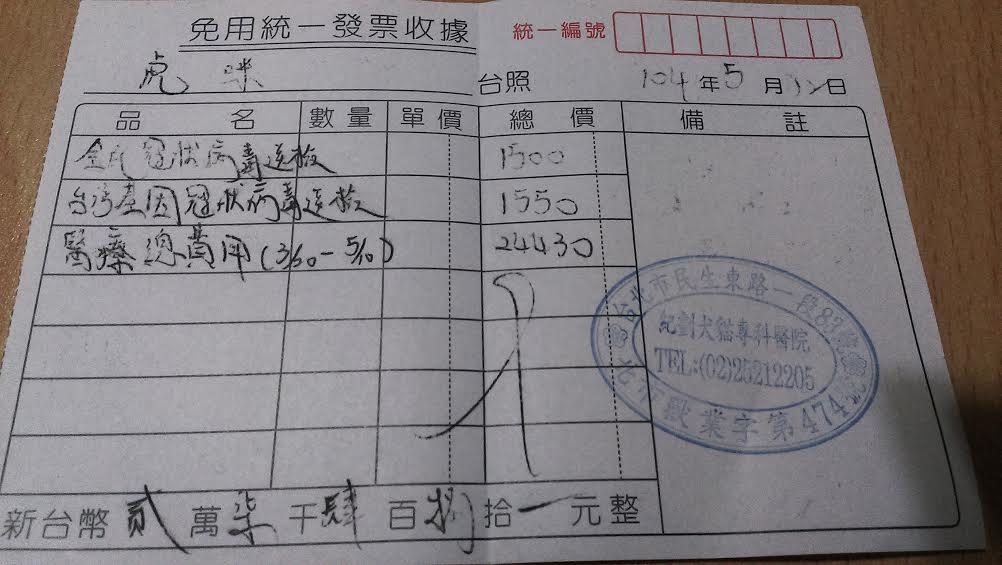 免用統一發票收據
統一編號
虎 咪 台照 104年5月 日
品 名 數量 單價 總 價 備 註
冠狀病毒送檢 1500
台灣基因冠狀病毒送檢 1550
醫療總費用(3/30-5/10) 24430
台北市民生東路一段83號
紀對犬貓專科醫院
TEL:(02)25212205
北市獸業字第474號
新台幣貳萬柒千肆百捌拾一元整